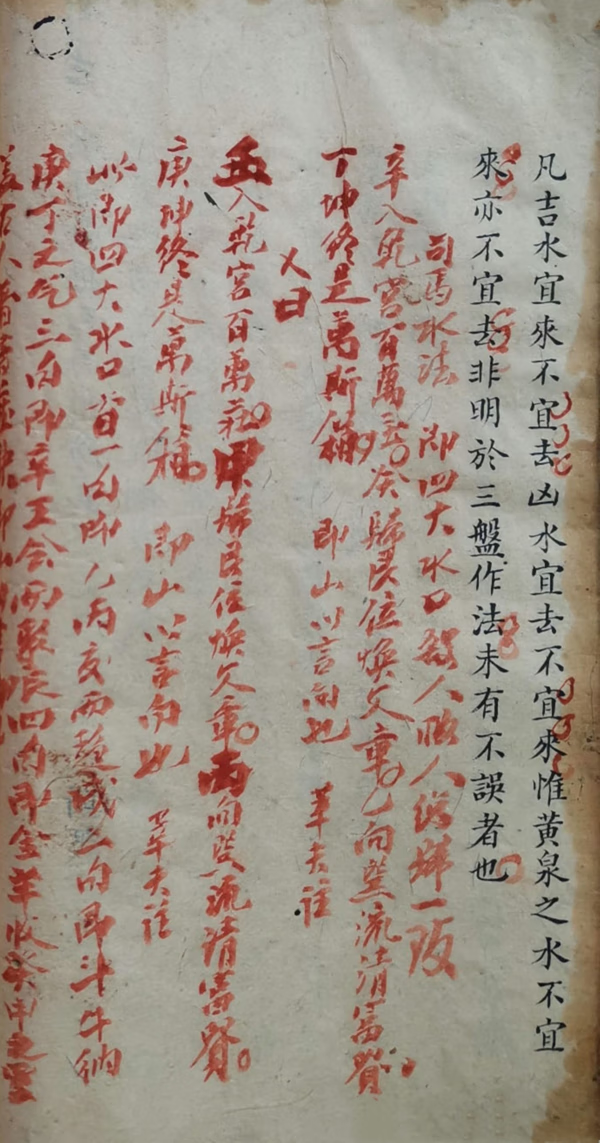 凡吉水宜來不宜去凶水宜去不宜來惟黃泉之水不宜
來亦不宜去非明於三盤作法未有不誤者也
司馬水法 即四大水口 人 人 一
辛入乾宮百萬庄癸歸艮位煥文章乙向巽流清富貴
丁坤終是萬斯箱 即山以言向也 莘夫註
又曰
壬入乾宮百萬庄甲歸艮位煥文章丙向巽流清富貴
庚坤終是萬斯箱 即山以言向也 莘夫註
此即四大水口首一向即乙丙交而趨戌二向即斗牛納
庚丁之氣三向即辛壬會而聚辰四向即金羊收癸甲之靈